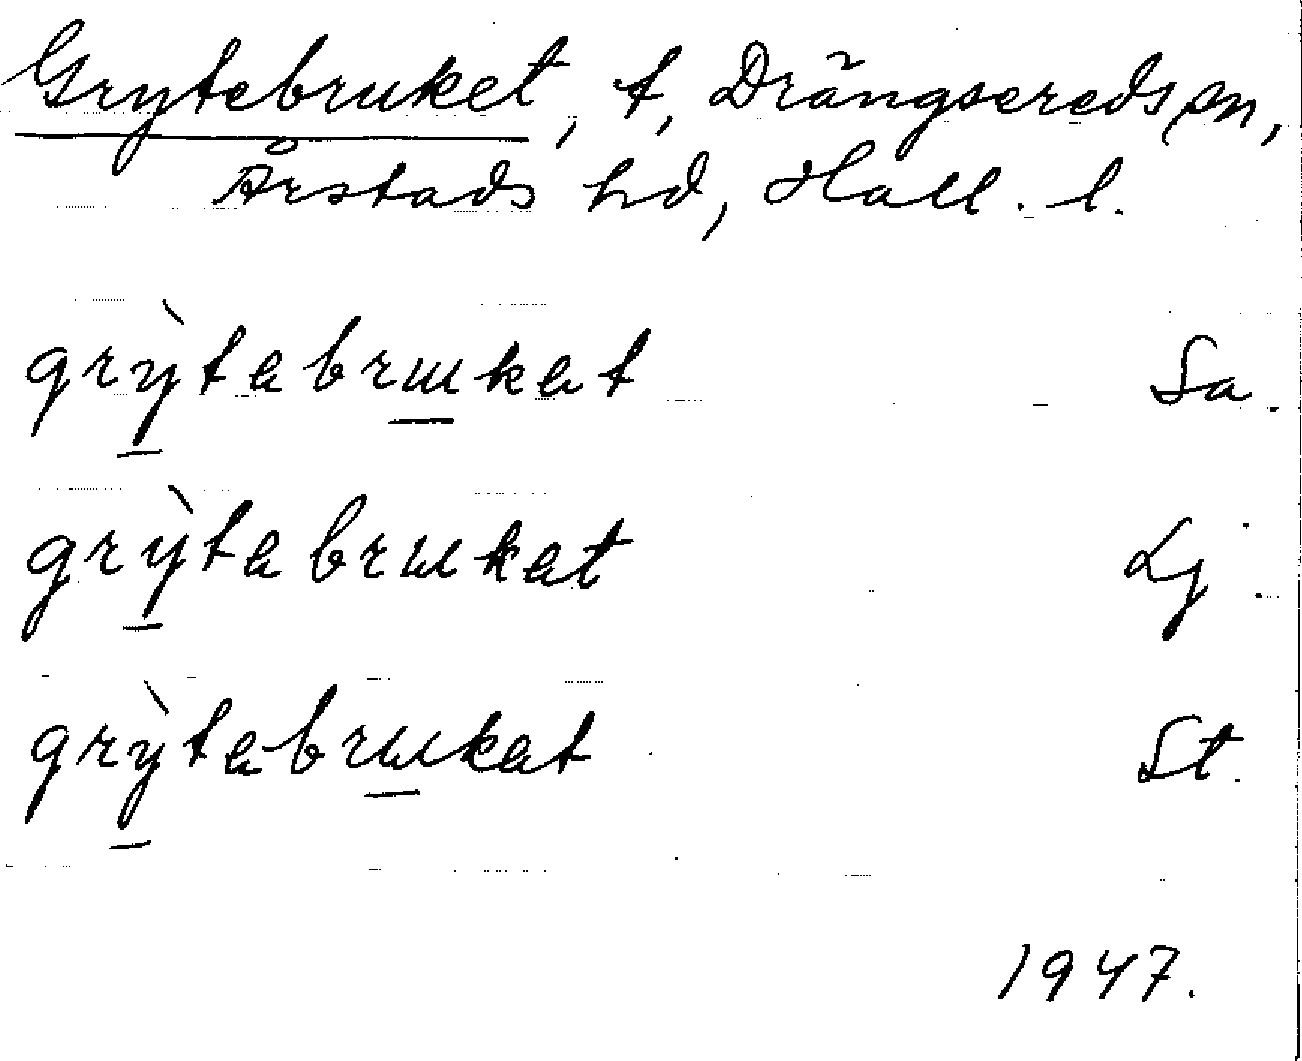 Grytebruket, t, Drängsereds sn,
Årstads hd, Hall. l.
grỳtabrɯkat Sa.
grỳtabrɯkat Lj.
grỳtabrɯkat St.
1947.